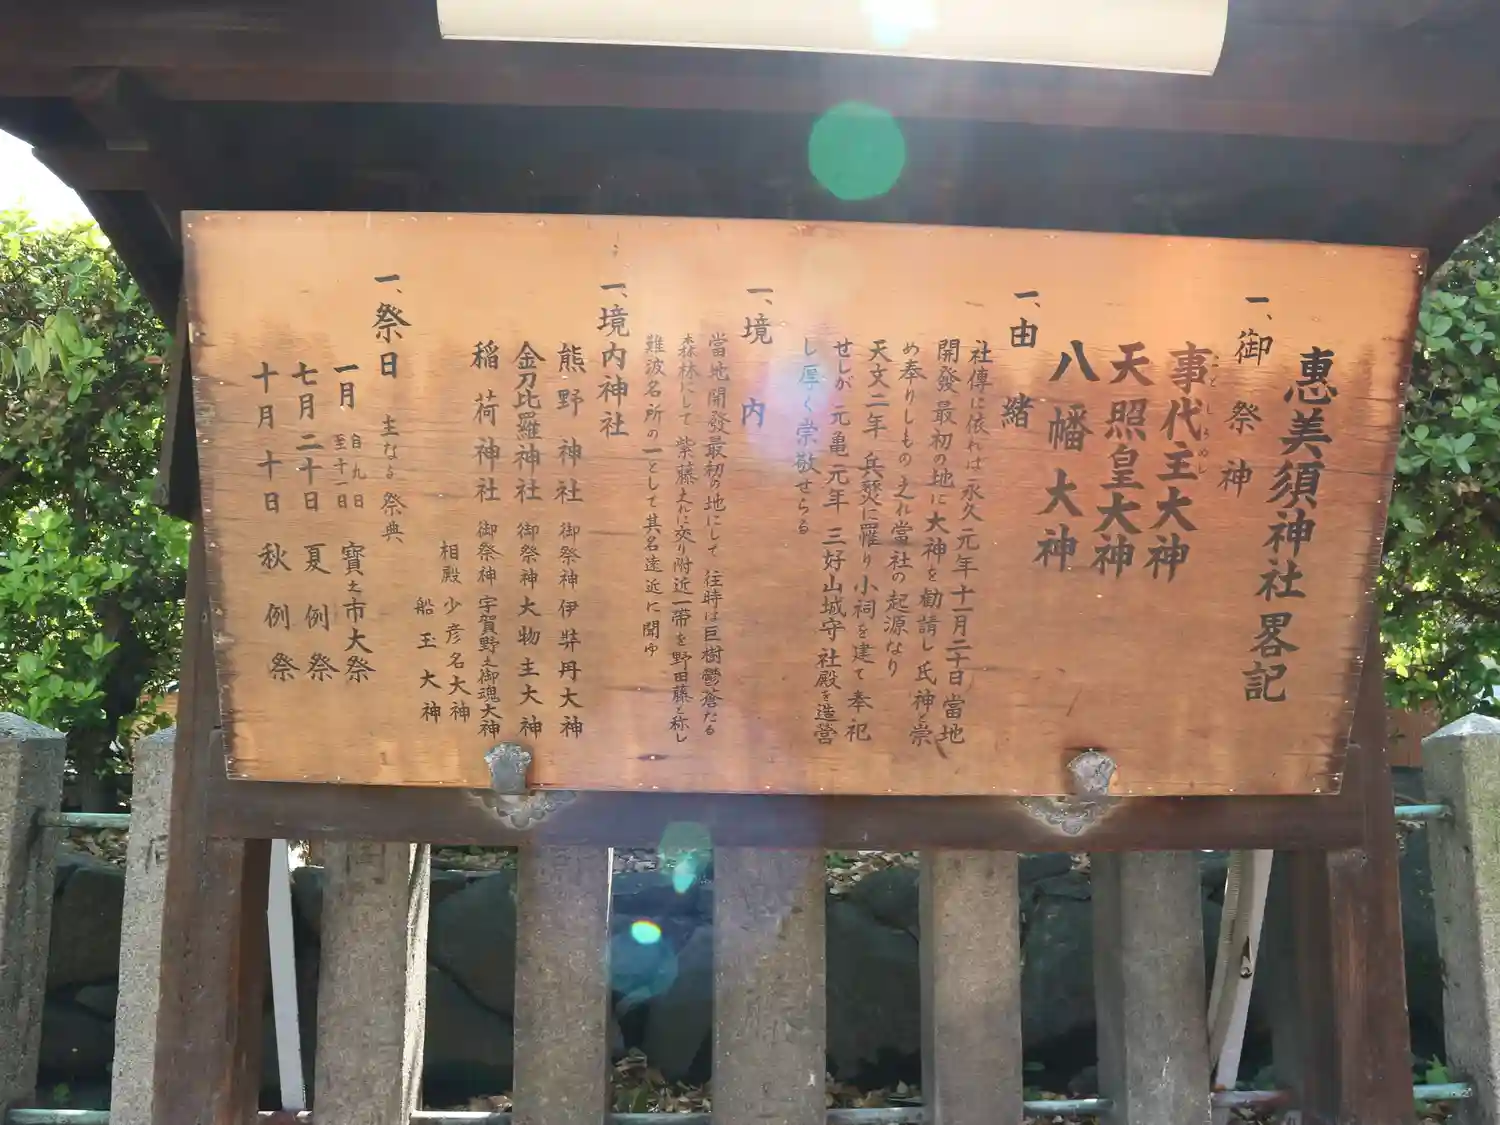 惠美須神社畧記
一、御祭神
事代主大神
ことしろぬし
天照皇大神
八幡大神
一、由緒
社傳に依れば永久元年十一月二十日當地
開發最初の地に大神を勸請し氏神と崇
め奉りしものこれ當社の起源なり
天文二年兵燹に罹り小祠を建て奉祀
せしが元亀元年三好山城守社殿を造営
し厚く崇敬せらる
一、境内
當地開發最初の地にして往時は巨樹鬱蒼たる
森林にして紫藤之れに交り附近一帯を野田藤と称し
難波名所の一として其名遠近に聞ゆ
一、境内神社
熊野神社 御祭神 伊弉冉大神
金刀比羅神社 御祭神 大物主大神
稲荷神社 御祭神 宇賀野之御魂大神
相殿 少彦名大神
船玉大神
一、祭日 主なる祭典
一月 自九日至十一日 寶之市大祭
七月二十日 夏例祭
十月十日 秋例祭